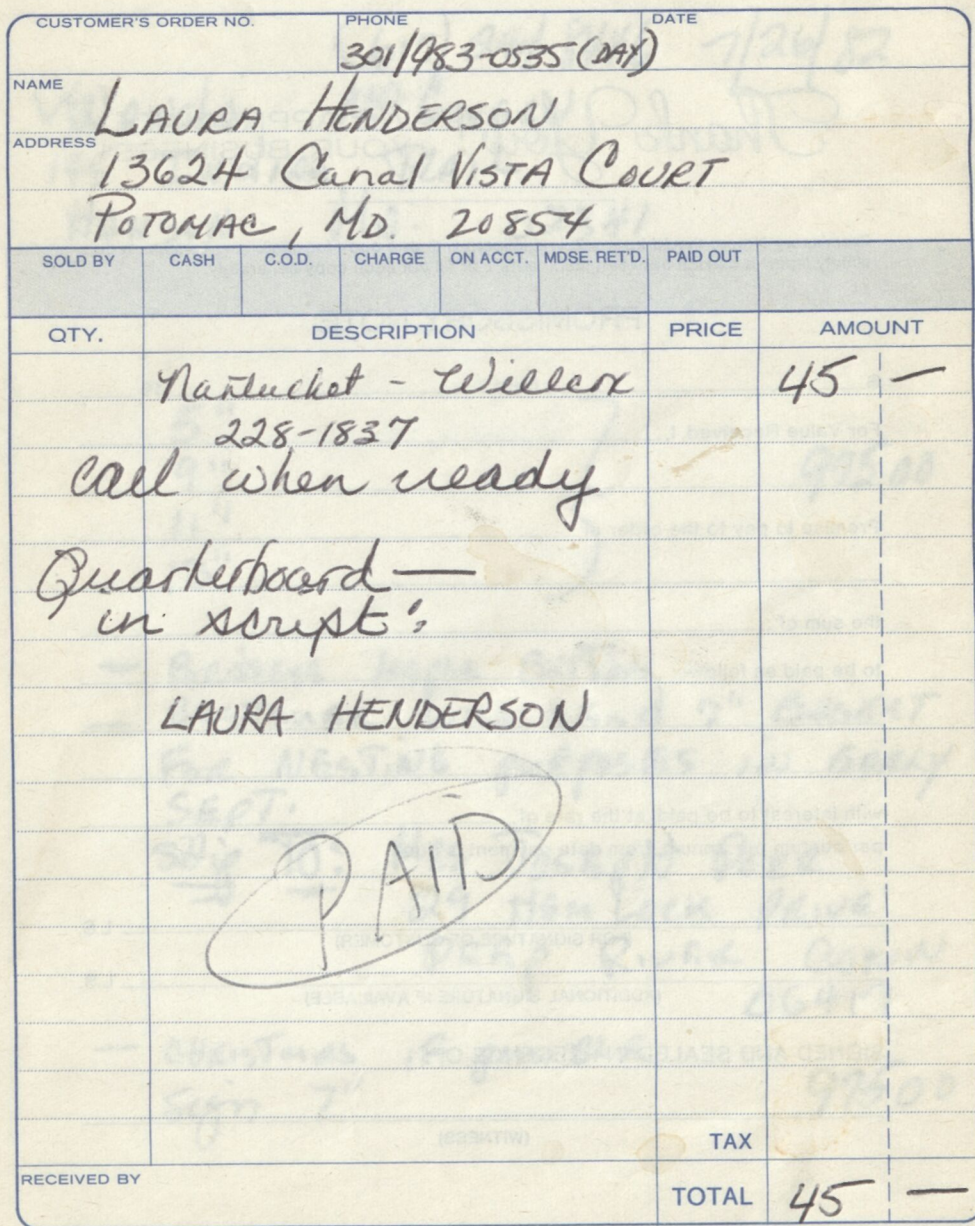 CUSTOMER'S ORDER NO. PHONE DATE
301/983-0535 (DAY)
NAME
LAURA HENDERSON
ADDRESS
13624 Canal VISTA COURT
POTOMAC, MD. 20854
SOLD BY CASH C.O.D. CHARGE ON ACCT. MDSE. RET'D. PAID OUT
QTY. DESCRIPTION PRICE AMOUNT
Nantucket - Willcox 45 —
228-1837
call when ready
Quarterboard —
in script:
LAURA HENDERSON
PAID
TAX
RECEIVED BY
TOTAL 45 —